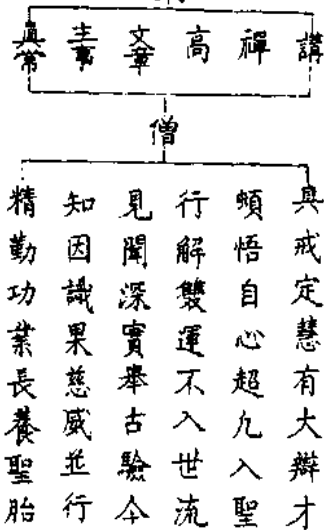 講
禪
高
文章
主事
眞常
僧
具戒定慧有大辯才
頓悟自心超凡入聖
行解雙運不入世流
見聞深實舉古驗今
知因識果慈威並行
精勤功業長養聖胎